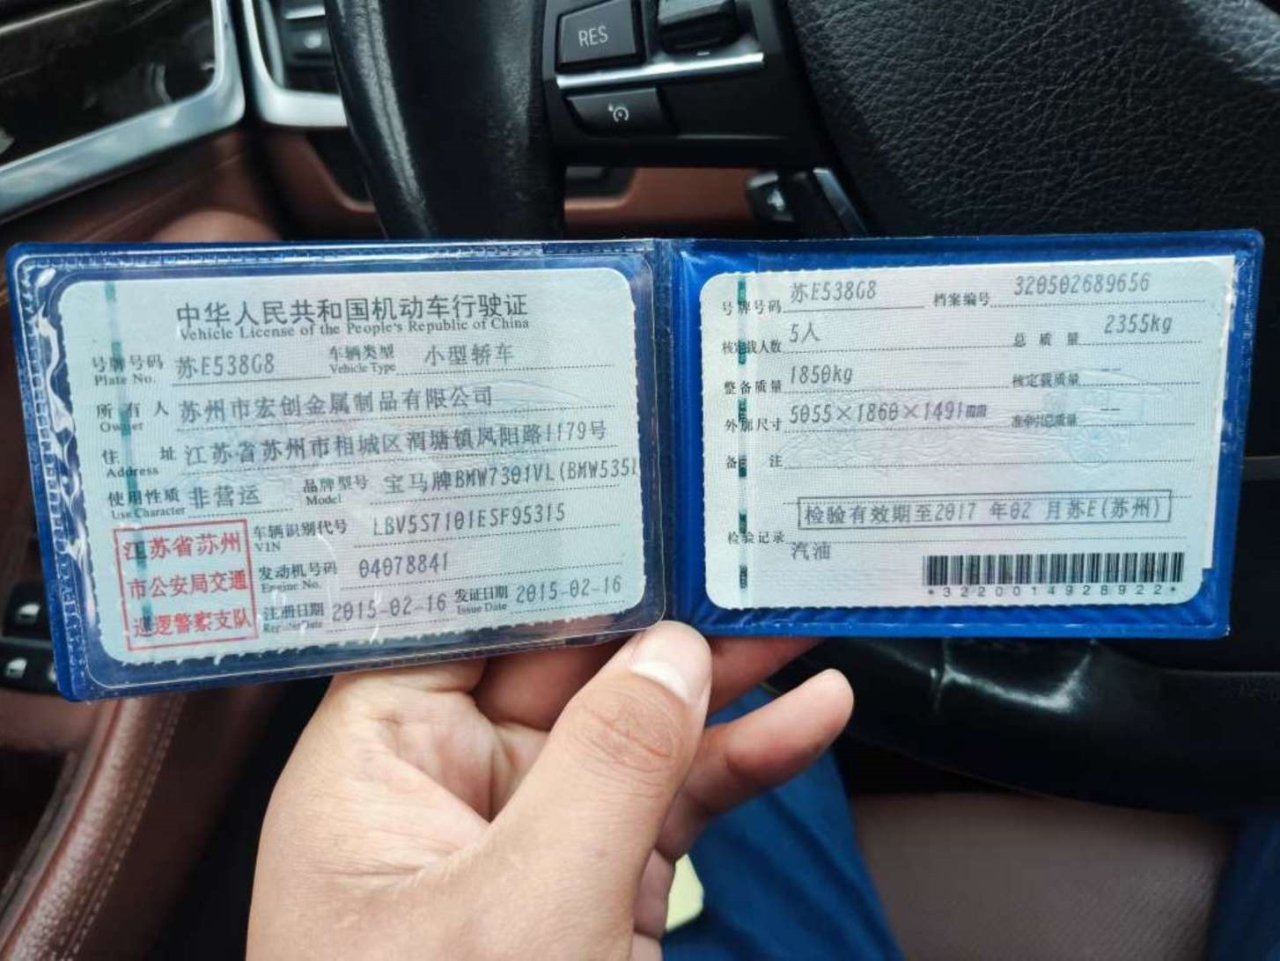 RES
中华人民共和国机动车行驶证
Vehicle License of the People's Republic of China
号牌号码 苏E538G8 车辆类型 小型轿车
Plate No. Vehicle Type
所有人 苏州市宏创金属制品有限公司
Owner
住址 江苏省苏州市相城区渭塘镇凤阳路1179号
Address
使用性质 非营运 品牌型号 宝马牌BMW7301VL(BMW535l
Use Character Model
江苏省苏州
市公安局交通
巡逻警察支队
车辆识别代号 LBV5S7101ESF95315
VIN
发动机号码 04078841
Engine No.
注册日期 2015-02-16 发证日期 2015-02-16
Register Date Issue Date
号牌号码 苏E538G8 档案编号 320502689656
核定载人数 5人 总质量 2355kg
整备质量 1850kg 核定载质量 --
外廓尺寸 5055×1860×1491mm 准牵引总质量 --
备注
检验有效期至2017 年02 月苏E(苏州)
检验记录
汽油
*3220014928922*